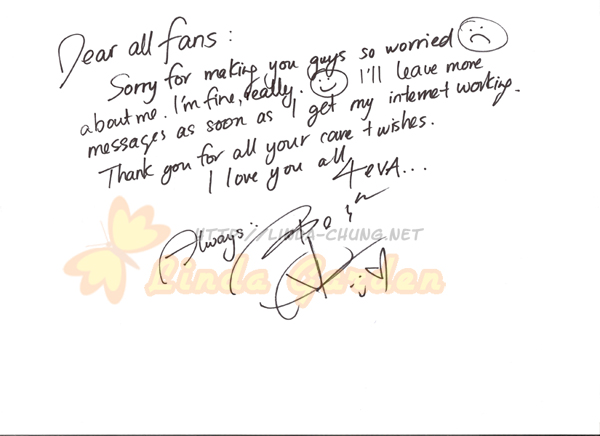 Dear all fans:
Sorry for making you guys so worried
about me. I'm fine, really. I'll leave more
messages as soon as I get my internet working.
Thank you for all your care + wishes.
I love you all
4 eva...
Always:
HTTP://LINDA-CHUNG.NET
Linda Garden